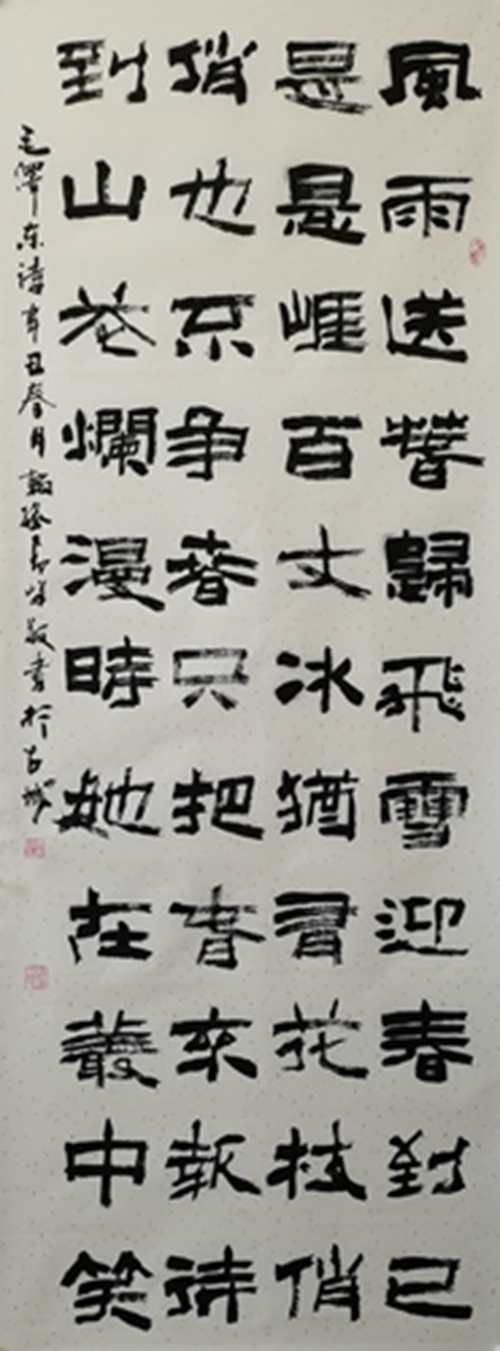 風雨送春歸飛雪迎春到已
是悬崖百丈冰猶有花枝俏
俏也不争春只把春来報待
到山花爛漫時她在叢中笑
毛澤东詩辛丑春月敬書於古城